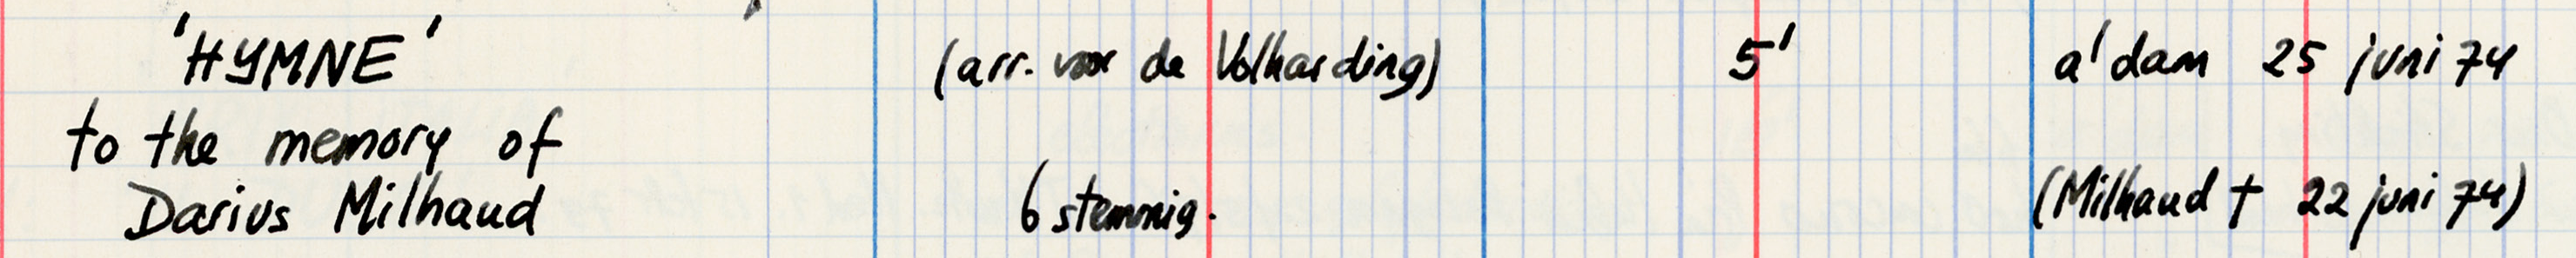 'HYMNE' (arr. voor de Volharding) 5' a'dam 25 juni 74
to the memory of
Darius Milhaud 6 stemmig. (Milhaud † 22 juni 74)